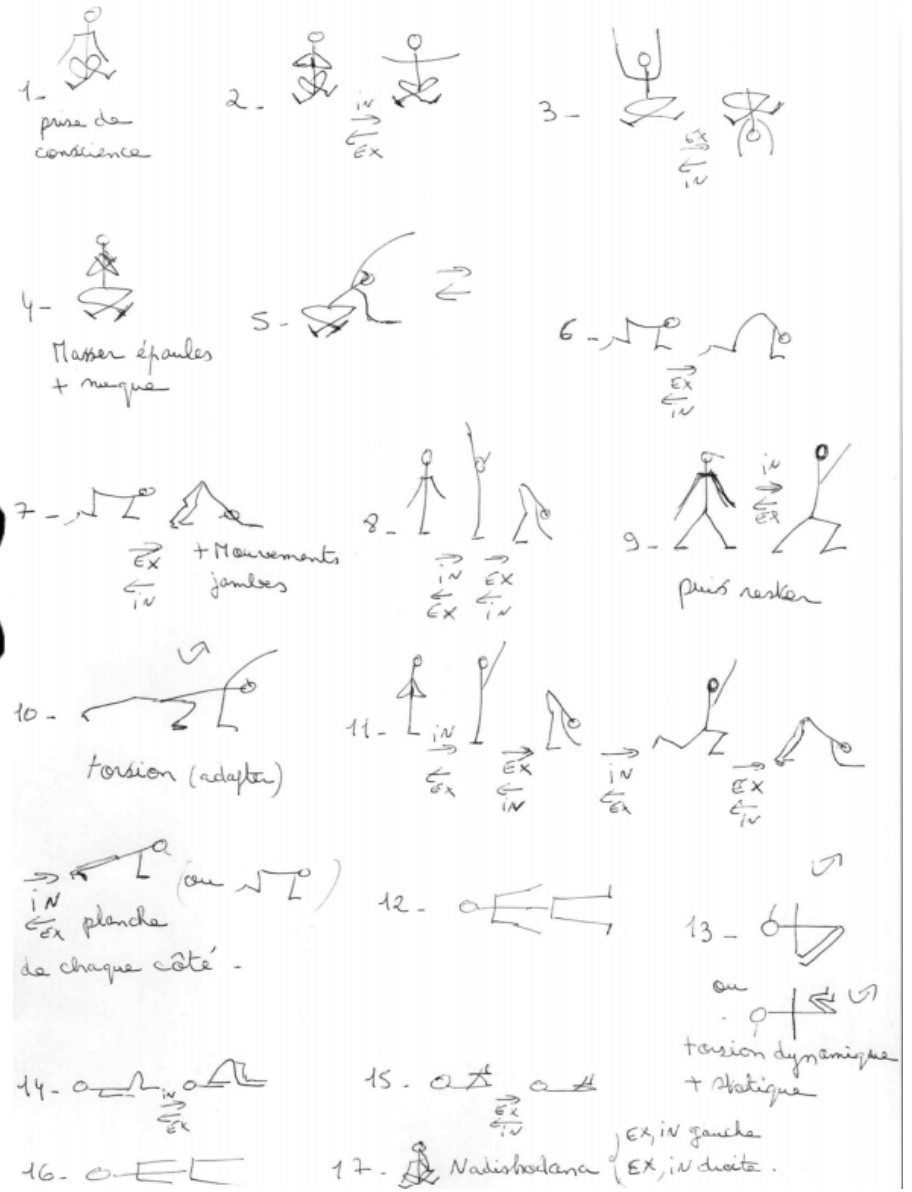 1_
prise de
conscience
2_
iN
EX
3_
EX
iN
4_
Masser épaules
+ nuque
5_
6_
EX
iN
7_
EX
iN
+ Mouvements
jambes
8_
iN EX
EX iN
9_
iN
EX
puis rester
10_
torsion (adapter)
11_
iN
EX
EX
iN
iN
EX
EX
iN
iN
EX
planche
(ou )
de chaque côté_
12_
13_
ou
torsion dynamique
+ statique
14_
iN
EX
15_
EX
iN
16_
17_ Nadishodana { EX, iN gauche
EX, iN droite.